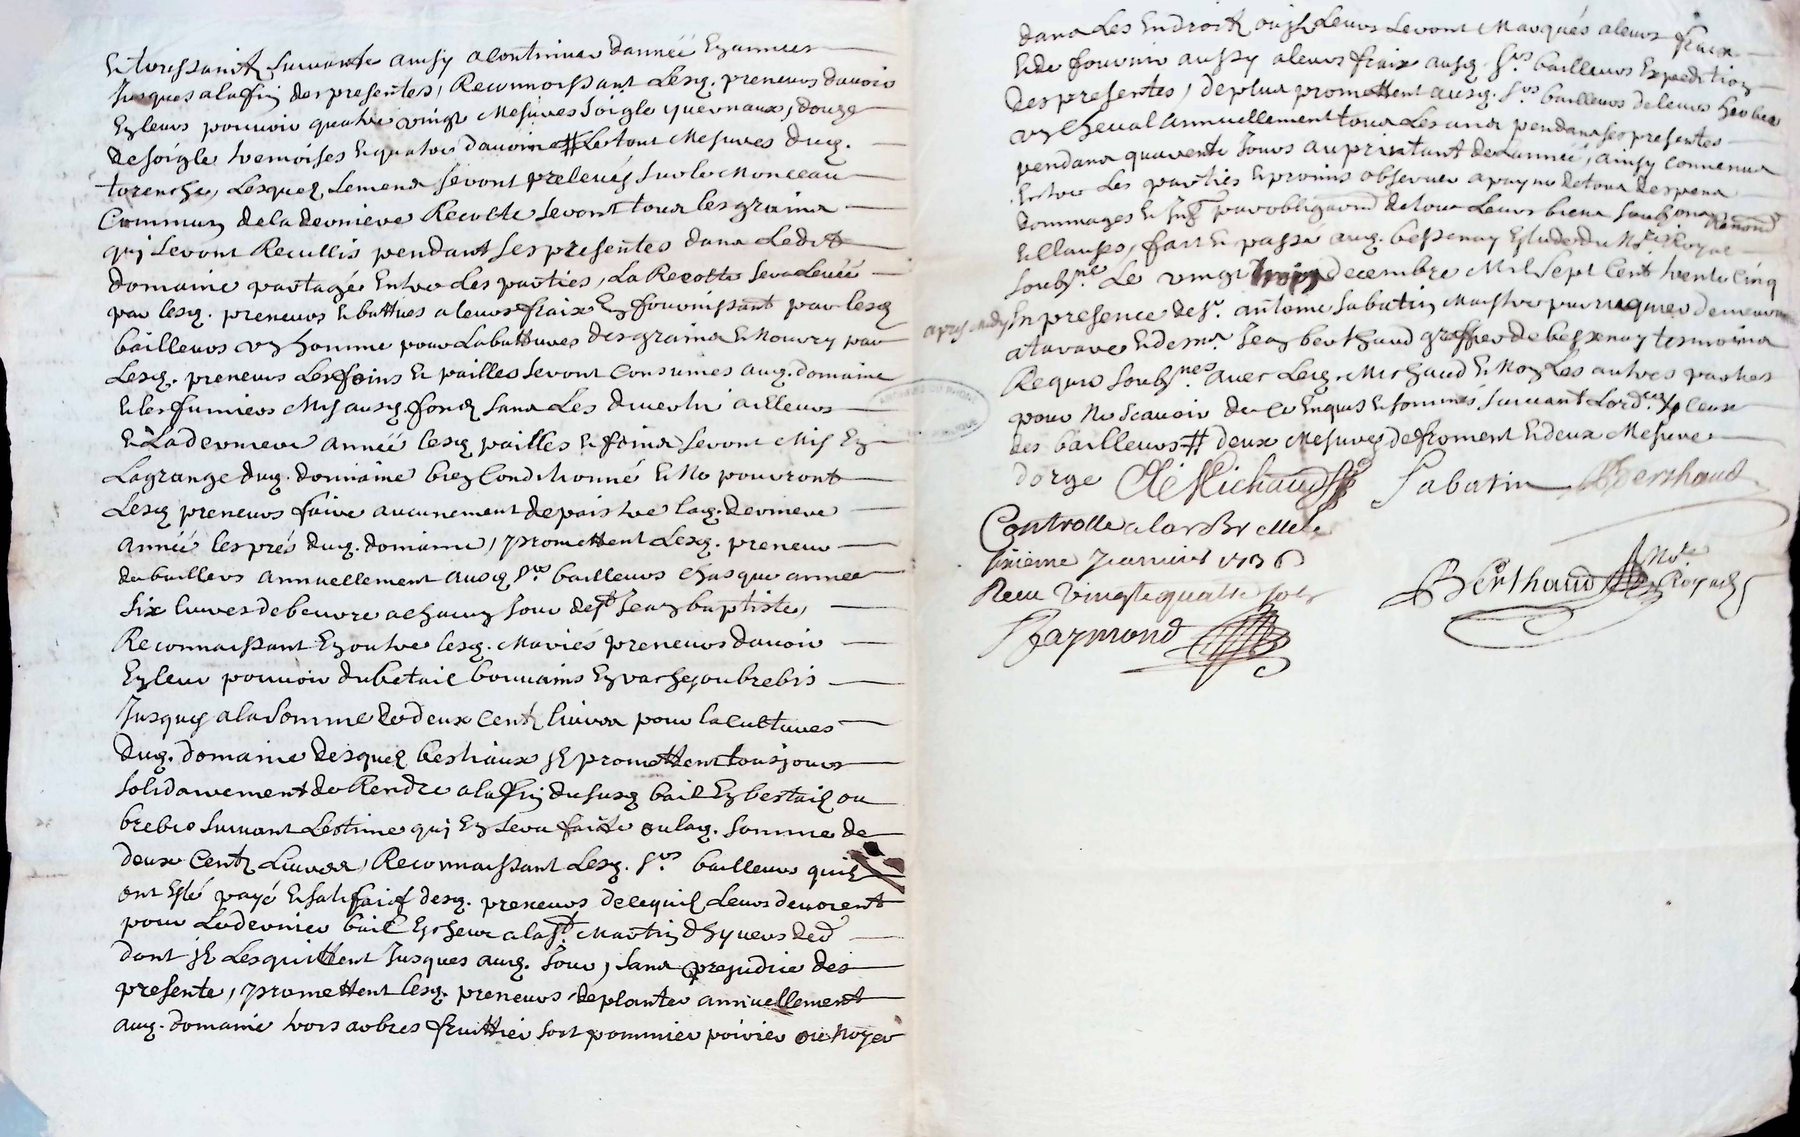 et toussaint suivantes ainsy a continuer dannée en années
jusques a la fin des presentes, Reconnoissant lesq. preneurs davoir
en leurs pouvoir quatre vingt Mesures soigle yvernaux, douze
de soigle tremoises et quatre d'avoine # le tout Mesures dug.
torenche, lesquels semens seront prelevés sur le Monceau
Commun de la derniere Recolte seront tous les grains
quj seront Recullis pendant les presentes dans ledit
domaine partagés entre les parties, La Recolte sera levée
par lesq. preneurs et battues a leurs fraix en fournissant par lesq
bailleurs un homme pour la battures des grains et Nourry par
lesq. preneurs les foins et pailles seront consumés aug. domaine
et les fumiers Mis ausq. fonds sans les divertir ailleurs
et La derniere année lesq pailles et foins seront Mis en
La grange dug. domaine bien Conditionné et No pourront
Lesq preneurs faire aucunement depaistre laq. derniere
année les prés dug. domaine, promettent lesq. preneur
de baillers annuellement ausq srs bailleurs chasque année
six livres de beurre a chacun jour de st jean baptiste,
Reconnaissant en outre lesq. Mariés preneurs davoir
En leur pouvoir du betail bouvains en vaches ou brebis
Jusques a la somme de deux cents livres pour la cultures
dug. domaine desquels bestiaux jls promettent tousjours
solidairement de Rendre a la fin du susq bail En bestails ou
brebis suivant Lestime quj En sera faitte ou laq. somme de
deux Cents Livres, Reconnaissant Lesq. srs bailleurs quils
ont Esté payé et satisfaict desq. preneurs de cequils leurs devoient
pour Le dernier bail Escheue a la st Martin dhyvers der
dont jls Les quittent Jusques aug. Jour, sans prejudice des
presente, promettent lesq. preneurs de planter annuellement
aug. domaine trois arbres fruittier soit pommier poirier ou Noyer
dans Les Endroits ou jls Leurs seront Marqués a leurs fraix
et de fournir aussy a leurs fraix ausq. srs bailleurs Expedition
des presentes, de plus promettent ausq. srs bailleurs de leurs
un cheval annuellement tous les ans pendans ses presentes
pendans quarente Jours au printant de Lannée, ainsy convenus
Entre Les parties et promis observer a payne de tous despens
dommages et Jnts par obligaond de tous Leurs biens
et clauses, fait et passé aug. bessenay Estude du Nre Royal
soubsné Le vingt trois decembre Mil sept Cent trente cinq
apres Midy En presence de sr. antoine sabatin Maistre demeurant
a tarare et de mr Jean berthaud greffier de bessenay tesmoins
Requis soubsnés avec lesq. Michaud et Non Les autres parties
pour Ne scavoir de ce Enquis et sommés suivant Lordce ceux
des bailleurs # deux Mesures de froment et deux Mesures
dorge Cle Michaud Sabatin Berthaud
Controlle a larbrelle le
sixieme Janvier 1736
Receu vingt quatre sols
Raymond
Berthaud Nre Royal